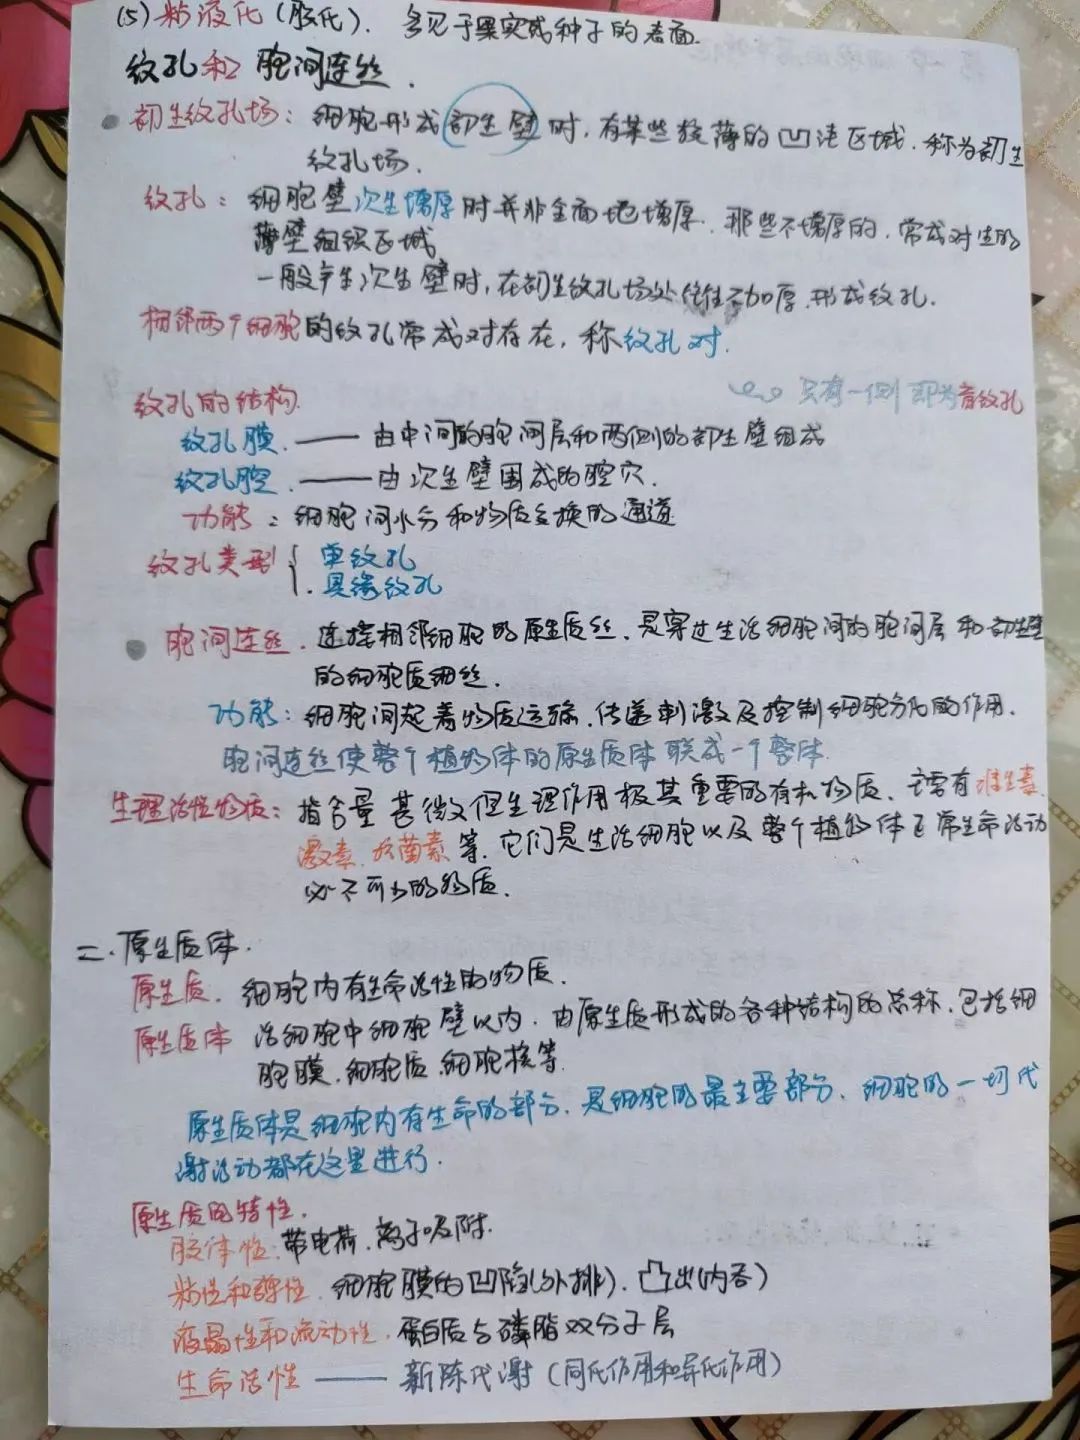 (5) 粘液化(胶化). 多见于果实或种子的表面.
纹孔和胞间连丝.
初生纹孔场: 细胞形成初生壁时, 有某些较薄的凹洼区域. 称为初生
纹孔场.
纹孔: 细胞壁次生增厚时并非全面地增厚. 那些不增厚的. 常成对生的
薄壁组织区域
一般产生次生壁时, 在初生纹孔场处往往不加厚. 形成纹孔.
相邻两个细胞的纹孔常成对存在, 称纹孔对.
只有一侧即为盲纹孔
纹孔的结构.
纹孔膜. —— 由中间的胞间层和两侧的初生壁组成
纹孔腔. —— 由次生壁围成的腔穴.
功能: 细胞间水分和物质交换的通道
纹孔类型{ 单纹孔
具缘纹孔
胞间连丝. 连接相邻细胞的原生质丝. 是穿过生活细胞间的胞间层和初生壁
的细胞质细丝.
功能: 细胞间起着物质运输. 传递刺激及控制细胞分化的作用.
胞间连丝使整个植物体的原生质体联成一个整体.
生理活性物质: 指含量甚微但生理作用极其重要的有机物质. 主要有维生素.
激素. 抗菌素等. 它们是生活细胞以及整个植物体正常生命活动
必不可少的物质.
二. 原生质体.
原生质. 细胞内有生命活性的物质.
原生质体 活细胞中细胞壁以内. 由原生质形成的各种结构的总称. 包括细
胞膜. 细胞质. 细胞核等.
原生质体是细胞内有生命的部分. 是细胞的最主要部分. 细胞的一切代
谢活动都在这里进行.
原生质的特性.
胶体性: 带电荷. 离子吸附.
粘性和弹性. 细胞膜的凹陷(外排). 凸出(内吞)
液晶性和流动性. 蛋白质与磷脂双分子层
生命活性 —— 新陈代谢(同化作用和异化作用)